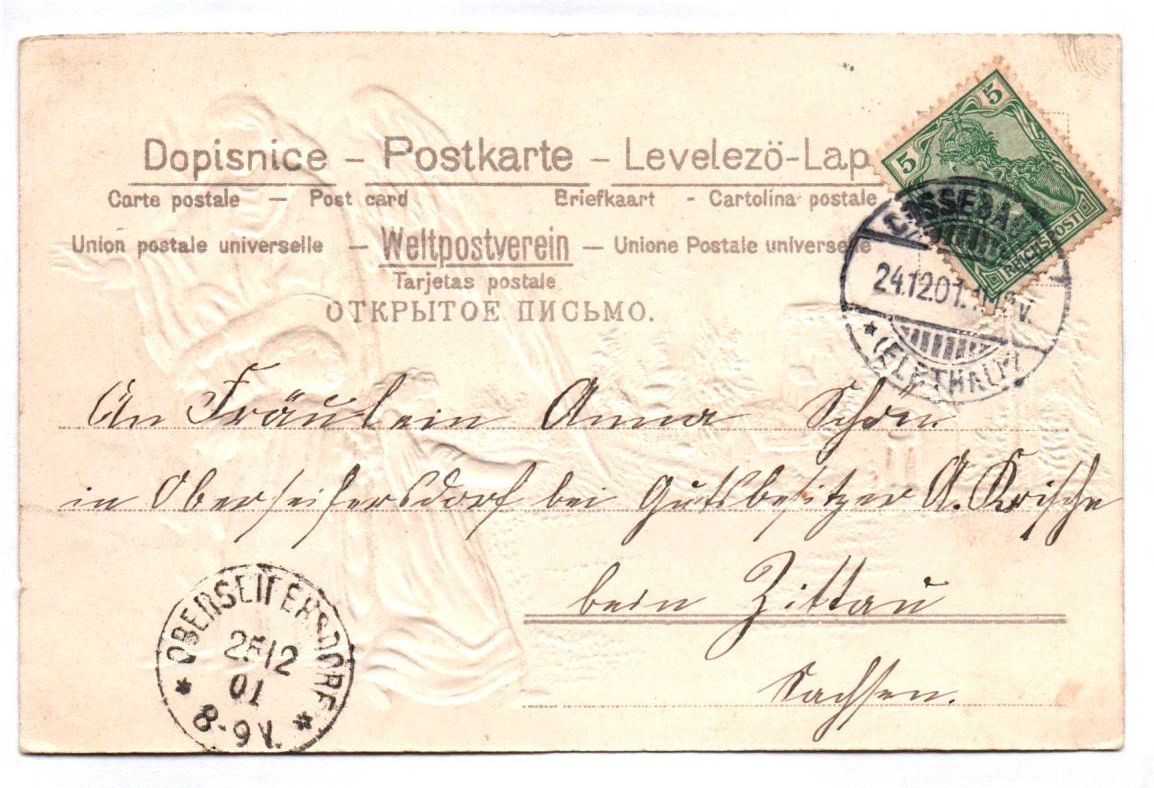 Dopisnice – Postkarte – Levelező-Lap
Carte postale – Post card Briefkaart - Cartolina postale
Union postale universelle – Weltpostverein – Unione Postale universelle
Tarjetas postale
ОТКРЫТОЕ ПИСЬМО.
5 5
REICHSPOST
COSSEBAUDE
24.12.01.
* (ELBTHAL) *
An Fräulein Anna Schorn
in Oberseifersdorf bei Gutsbesitzer A. Krische
bein Zittau
Sachsen.
* OBERSEIFERSDORF *
25/12
01
8-9 V.